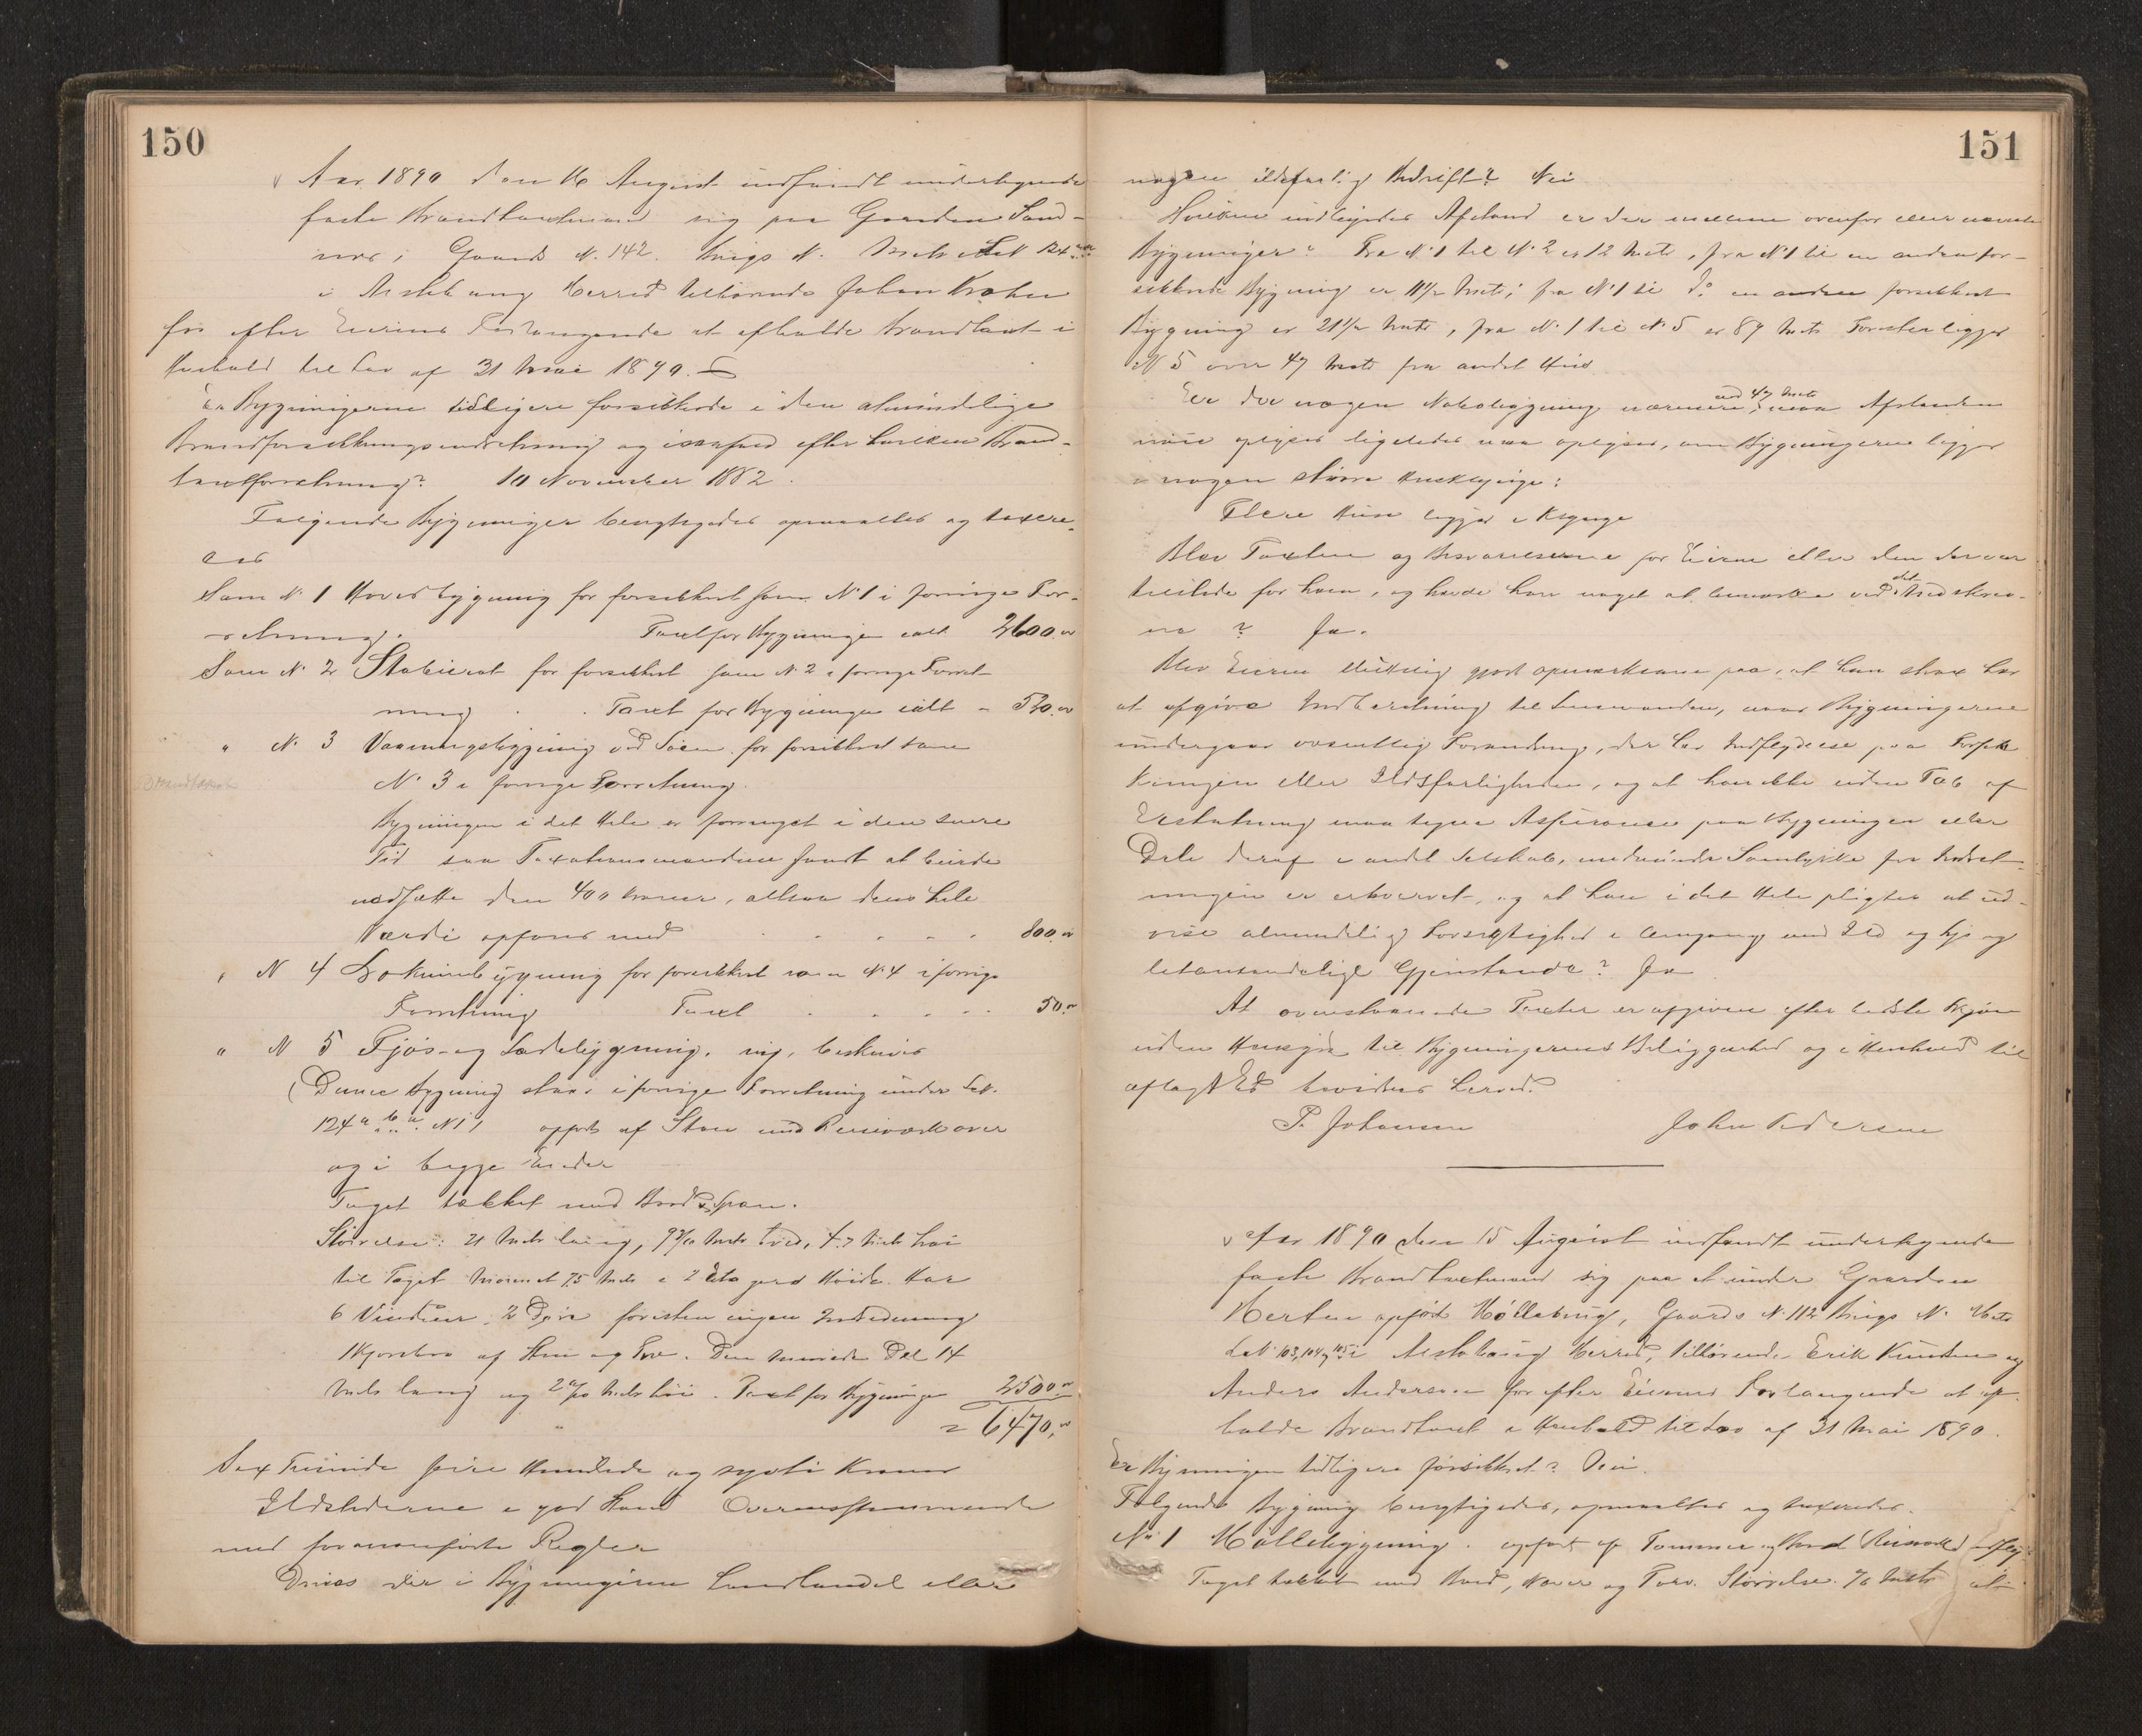 150
Aar 1890 den 16 August indfandt undertegnede
faste Brandtaxtmænd sig paa Gaarden Sand-
nes, Gaards N. 142. Brugs N. Matr LN
i Alstahaug Herred tilhørende Johan
for efter Eierens Forlangende at afholde Brandtaxt i
Henhold til Lov af 31 Mai 1890.
Er Bygningerne tidligere forsikkrede i den almindelige
Brandforsikkringsindretning og isaafald efter hvilken Brand-
taxtforretning? 10 November 1882.
Følgende Bygninger besigtigedes opmaaltes og taxere-
des
Som N 1 Hovedbygning før forsikkret som N 1 i forrige For-
retning. Taxt for Bygningen ialt 2600.00
Som N 2 Stabburet før forsikkret som N 2 i forrige Forret-
ning . . Taxt for Bygningen ialt - 520.00
" N. 3 Vaaningsbygning ved Søen før forsikkret som
N 3 i forrige Forretning.
Bygningen i det Hele er forringet i den senere
Tid saa Taxationsmændene fandt at burde
nedsætte den 400 Kroner, altsaa dens hele
Værdi opføres med . . . . . 800.00
" N 4 bygning før forsikkret som N 4 i forrige
Forretning Taxt . . . . . 50.00
" N 5 Fjøs- og Ladebygning, ny, beskrives
(Denne Bygning staar i forrige Forretning under LN.
124 N 1) opført af Sten med Reisværk over
og i begge Ender
Taget tækket med Bord Spon.
Størrelse: 21 Metr lang, 9 Metr bred, 4.7 Metr høi
til Taget Mønnet 7.5 Metr i 2 Etagers Høide. Har
6 Vinduer, 2 Døre forresten ingen Indredning
1 Kjørebro af Sten og Træ. Den murede Del 14
Metr lang og 2 Metr høi. Taxt for Bygningen 2500.00
= 6470.00
Sex Tusinde fire Hundrede og sytti Kroner
Ildstederne i god Stand Overensstemmende
med foranførte Regler
Drives der i Bygningerne Landhandel eller
151
nogen ildsfarlig Bedrift? Nei
Hvilken indbyrdes Afstand er der mellem ovenfor nævnte
Bygninger? Fra N 1 til N. 2 er 12 Metr, fra N 1 til en anden for-
sikkret Bygning er 11½ Metr; fra N 1 til do en anden forsikkret
Bygning er 21½ Metr, fra N. 1 til N. 5 er 89 Metr Forresten ligger
N 5 over 47 Metr fra andet Hus
Er der nogen Nabobygning nærmere end 47 Metr maa Afstanden
nøie oplyses ligeledes maa oplyses, om Bygningerne ligger
i nogen større Husklynge:
Flere Huse ligger i Klynge
Blev Taxten og Besvarelserne for Eieren eller den der var
tilstede for ham, og havde han noget at bemærke ved det Nedskrev-
ne? Ja.
Blev Eieren gjort opmærksom paa, at han strax har
at afgive Indberetning til Lensmanden, naar Bygningerne
undergaar væsentlig Forandring, der har Indflydelse paa Forsik-
kringen eller Ildsfarligheden, og at han ikke uden Tab af
Erstatning maa tegne Assurance paa Bygningen eller
Dele deraf i andet Selskab, medmindre Samtykke fra Indret-
ningen er erhvervet, og at han i det Hele pligter at ud-
vise almindelig Forsigtighed i Omgang med Ild og Lys og
letantændelige Gjenstande? Ja
At ovenstaaende Taxter er afgivne efter bedste Skjøn
uden Hensyn til Bygningernes Beliggenhed og i Henhold til
aflagt Ed bevidnes herved.
P. Johansen John Pedersen
Aar 1890 den 15 August indfandt undertegnede
faste Brandtaxtmænd sig paa et under Gaarden
opført Møllebrug, Gaards N. 112 Brugs N. Matr
LN 103, 104 og 105 i Alstahaug Herred, tilhørende Erik Knudsen og
Anders Andersen for efter Eiernes Forlangende at af-
holde Brandtaxt i Henhold til Lov af 31 Mai 1890.
Er Bygningen tidligere forsikkret? Nei.
Følgende Bygning besigtigedes, opmaaltes og taxeredes.
N 1 Møllebygning. opført af Tømmer og Bord (Reisværk)
Taget tækket med Bord, Næver og Torv. Størrelse Metr